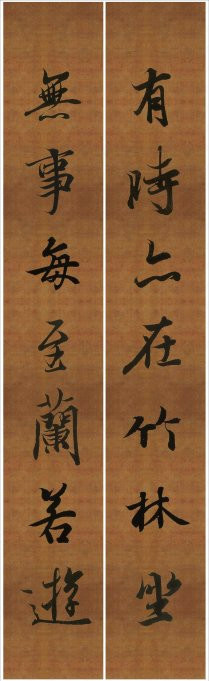 有時亦在竹林坐
無事每至蘭若遊